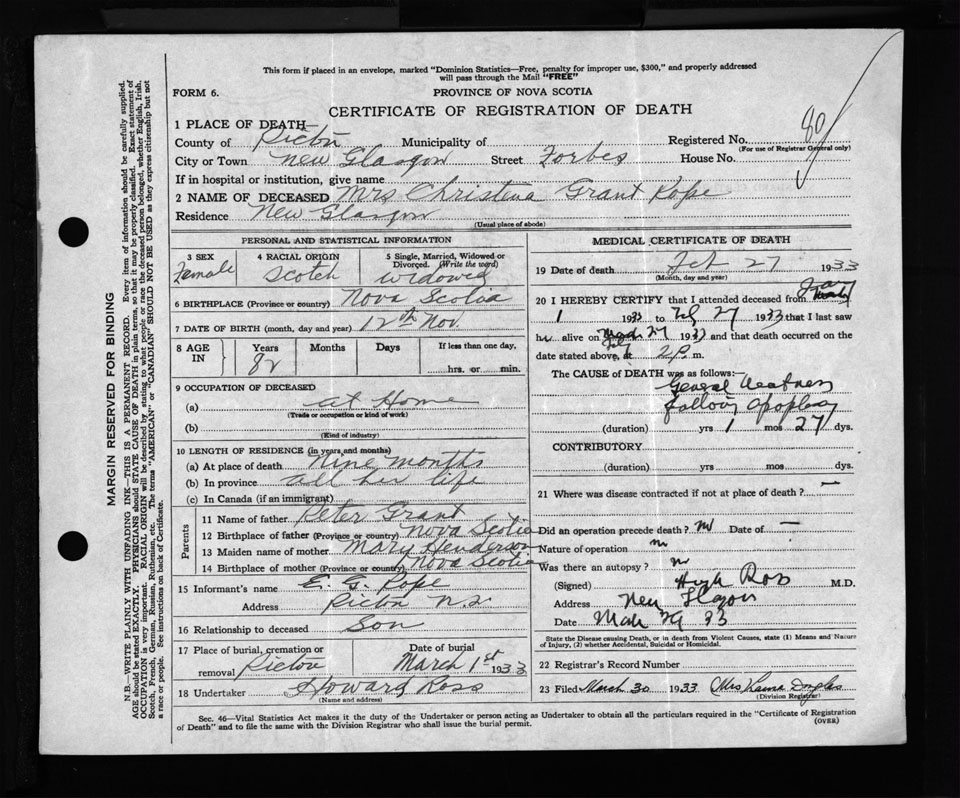 This form if placed in an envelope, marked "Dominion Statistics—Free, penalty for improper use, $300," and properly addressed
will pass through the Mail "FREE"
FORM 6.
PROVINCE OF NOVA SCOTIA
CERTIFICATE OF REGISTRATION OF DEATH
80
1 PLACE OF DEATH—
County of Pictou Municipality of Registered No.
(For use of Registrar General only)
City or Town New Glasgow Street Forbes House No.
If in hospital or institution, give name
2 NAME OF DECEASED Mrs Christena Grant Pope
Residence New Glasgow
(Usual place of abode)
PERSONAL AND STATISTICAL INFORMATION
3 SEX 4 RACIAL ORIGIN 5 Single, Married, Widowed or
Divorced. (Write the word)
Female Scotch widowed
6 BIRTHPLACE (Province or country) Nova Scotia
7 DATE OF BIRTH (month, day and year) 12th Nov.
8 AGE IN Years Months Days If less than one day,
82 hrs. or min.
9 OCCUPATION OF DECEASED
(a) at Home
(Trade or occupation or kind of work)
(b)
(Kind of industry)
10 LENGTH OF RESIDENCE (in years and months)
(a) At place of death nine months
(b) In province all her life
(c) In Canada (if an immigrant)
Parents
11 Name of father Peter Grant
12 Birthplace of father (Province or country) Nova Scotia
13 Maiden name of mother Mary Henderson
14 Birthplace of mother (Province or country) Nova Scotia
15 Informant's name E. G. Pope
Address Pictou N.S
16 Relationship to deceased Son
17 Place of burial, cremation or Date of burial
removal Pictou March 1st 1933
18 Undertaker Howard Ross
(Name and address)
MEDICAL CERTIFICATE OF DEATH
19 Date of death Feb 27 1933
(Month, day and year)
20 I HEREBY CERTIFY that I attended deceased from Jan
1 1933 to Feb 27 1933 that I last saw
her alive on Feb 27 1933 and that death occurred on the
date stated above, at 2 P. m.
The CAUSE OF DEATH was as follows:—
General Weakness
following apoplexy
(duration) yrs 1 mos 27 dys.
CONTRIBUTORY
(duration) yrs mos dys.
21 Where was disease contracted if not at place of death? —
Did an operation precede death? no Date of —
Nature of operation
Was there an autopsy? no
(Signed) Hugh Ross M.D.
Address New Glasgow
Date Mar 29 33
State the Disease causing Death, or in death from Violent Causes, state (1) Means and Nature
of Injury, (2) whether Accidental, Suicidal or Homicidal.
22 Registrar's Record Number
23 Filed March 30 1933 Mrs Douglas
(Division Registrar)
Sec. 46—Vital Statistics Act makes it the duty of the Undertaker or person acting as Undertaker to obtain all the particulars required in the "Certificate of Registration
of Death" and to file the same with the Division Registrar who shall issue the burial permit.
(OVER)
MARGIN RESERVED FOR BINDING
N.B.—WRITE PLAINLY WITH UNFADING INK—THIS IS A PERMANENT RECORD. Every item of information should be carefully supplied.
AGE should be stated EXACTLY. PHYSICIANS should STATE CAUSE OF DEATH in plain terms, so that it may be properly classified. Exact statement of
OCCUPATION is very important. RACIAL ORIGIN will be described by stating to what people or race the deceased person belonged, whether English, Irish,
Scotch, French, German, Russian, Ruthenian, etc. The terms "AMERICAN" or "CANADIAN" SHOULD NOT BE USED as they express citizenship but not
a race or people. See instructions on back of Certificate.